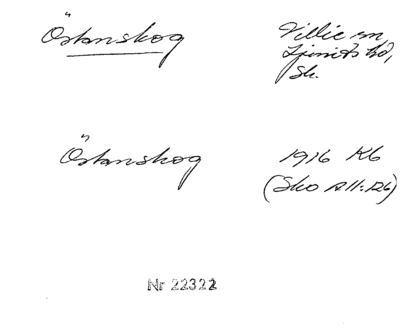 Östanskog
Villie sn,
Ljunits hd,
Sk.
Östanskog
1916 Kb
(Sko A11:26)
Nr 22322